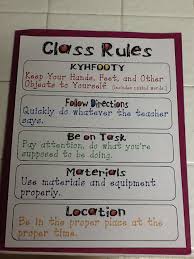 Class Rules
KYHFOOTY
Keep Your Hands, Feet, and Other
Objects to Yourself. (includes unkind words)
Follow Directions
Quickly do whatever the teacher
says.
Be on Task
Pay attention, do what you're
supposed to be doing.
Materials
Use materials and equipment
properly.
Location
Be in the proper place at the
proper time.